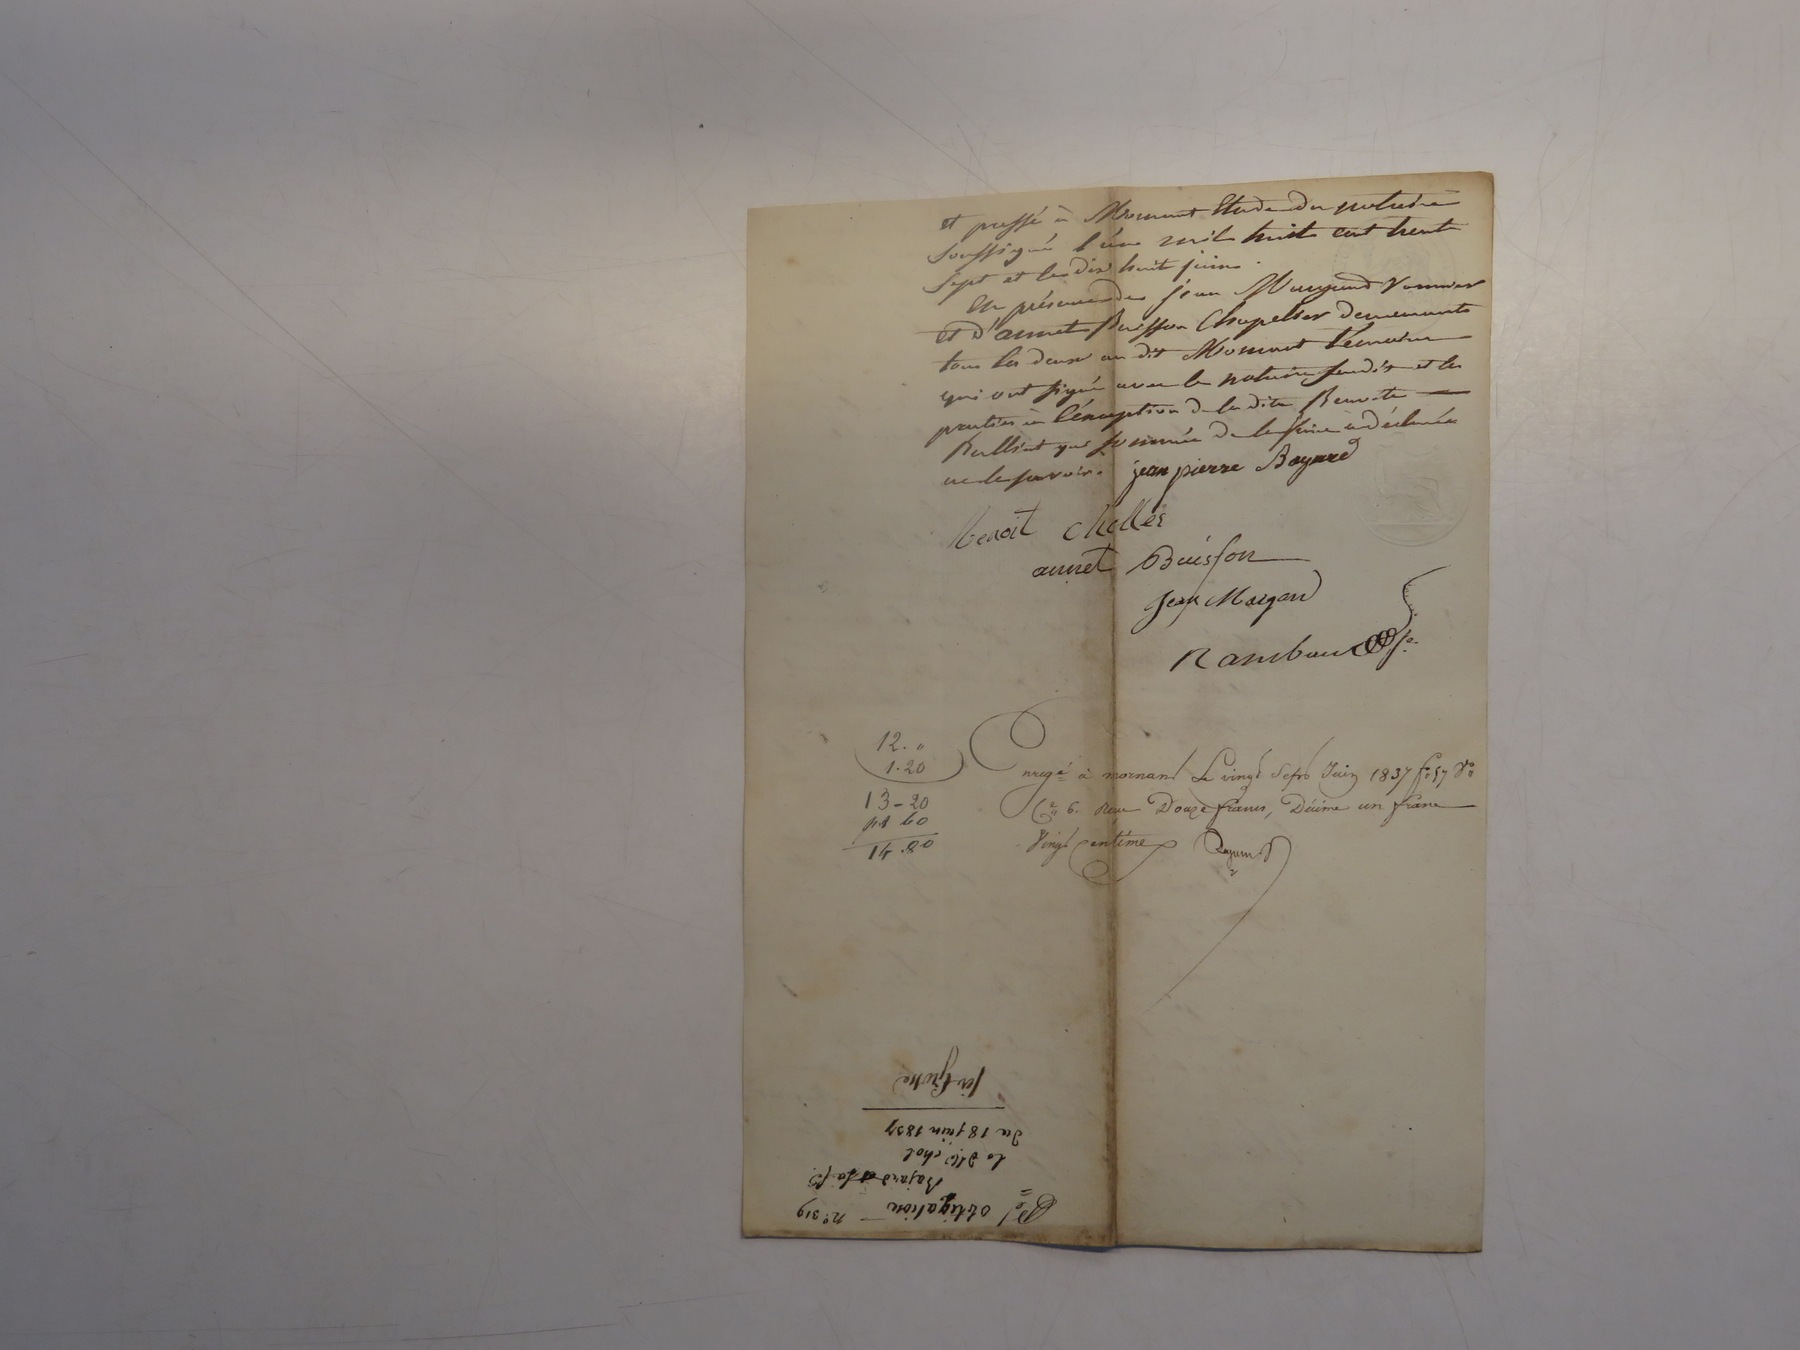 et passé à Mornant Etude du notaire
soussigné l'an mil huit cent trente
sept et le dix huit juin.
En présence de jean Margand Vannier
et d'annet Buisson Chapellier demeurants
tous les deux au dit Mornant témoins
qui ont signé avec le notaire susdit et les
parties à l'éxception de la dite Benoite
qui sommée de le faire a déclarée
ne le savoir. jean pierre Bayard
benoit chollet
annet Buisson
Jean Margand
Rambaud
12. "
1.20
13-20
60
14.80
Enregé à mornant Le vingt Sept Juin 1837 fo 57 Vo
Ce 6. Reçu Douze francs, Décime un franc
Vingt Centimes
obligation no 319
Bajard
to chol
du 18 juin 1837
1er Grosse